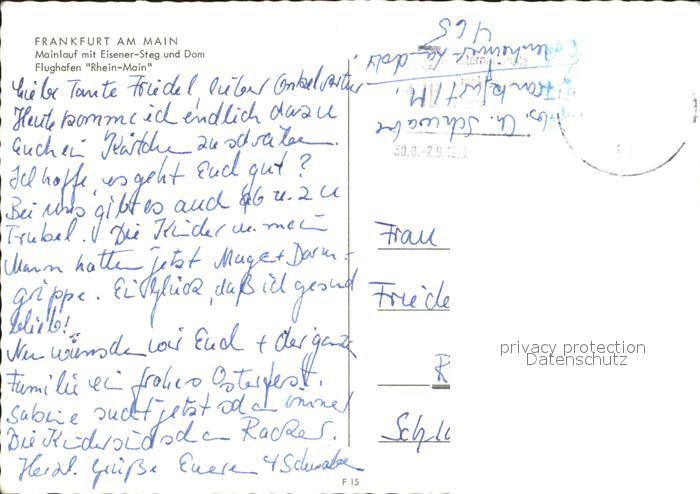 FRANKFURT AM MAIN
Mainlauf mit Eisener-Steg und Dom
Flughafen "Rhein-Main"
Liebe Tante Friedel, lieber Onkel Artur
Heute komme ich endlich dazu
Euch ein Kärtchen zu schreiben.
Ich hoffe, es geht Euch gut?
Bei uns gibt es auch ab u. zu
Trubel. Die Kinder u. mein
Mann hatten jetzt Magen + Darm-
grippe. Ein Glück, daß ich gesund
blieb!
Nun wünschen wir Euch + der ganzen
Familie ein frohes Osterfest.
Sabine sucht jetzt schon immer
Die Kinder sind schon Racker.
Herzl. Grüße Eueren 4 Schwaben
F 15
Abs. Ch. Schwabe
Frankfurt/M.
465
30.8.-2.9.
Frau
Friede
R
Sch
privacy protection
Datenschutz